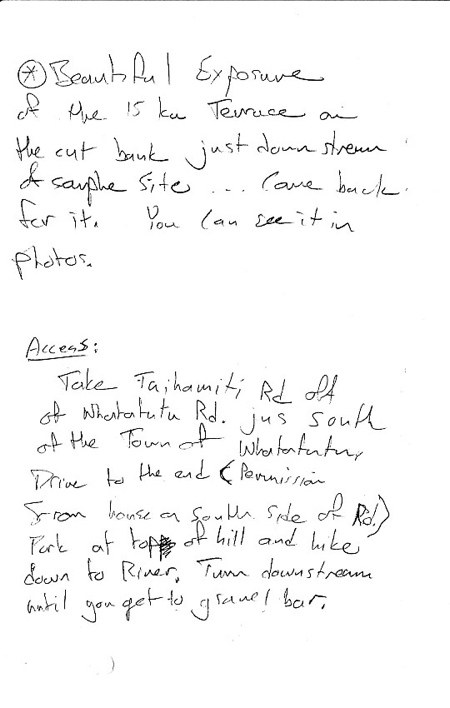 * Beautiful Exposure
of the 15 ka Terrace on
the cut bank just downstream
of sample site ... Come back
for it. You can see it in
photos.
Access:
Take Taihamiti Rd off
of Whatatutu Rd. jus south
of the Town of Whatatutu,
Drive to the end (Permission
From house on south side of Rd.)
Park at top of hill and hike
down to River. Turn downstream
until you get to gravel bar.